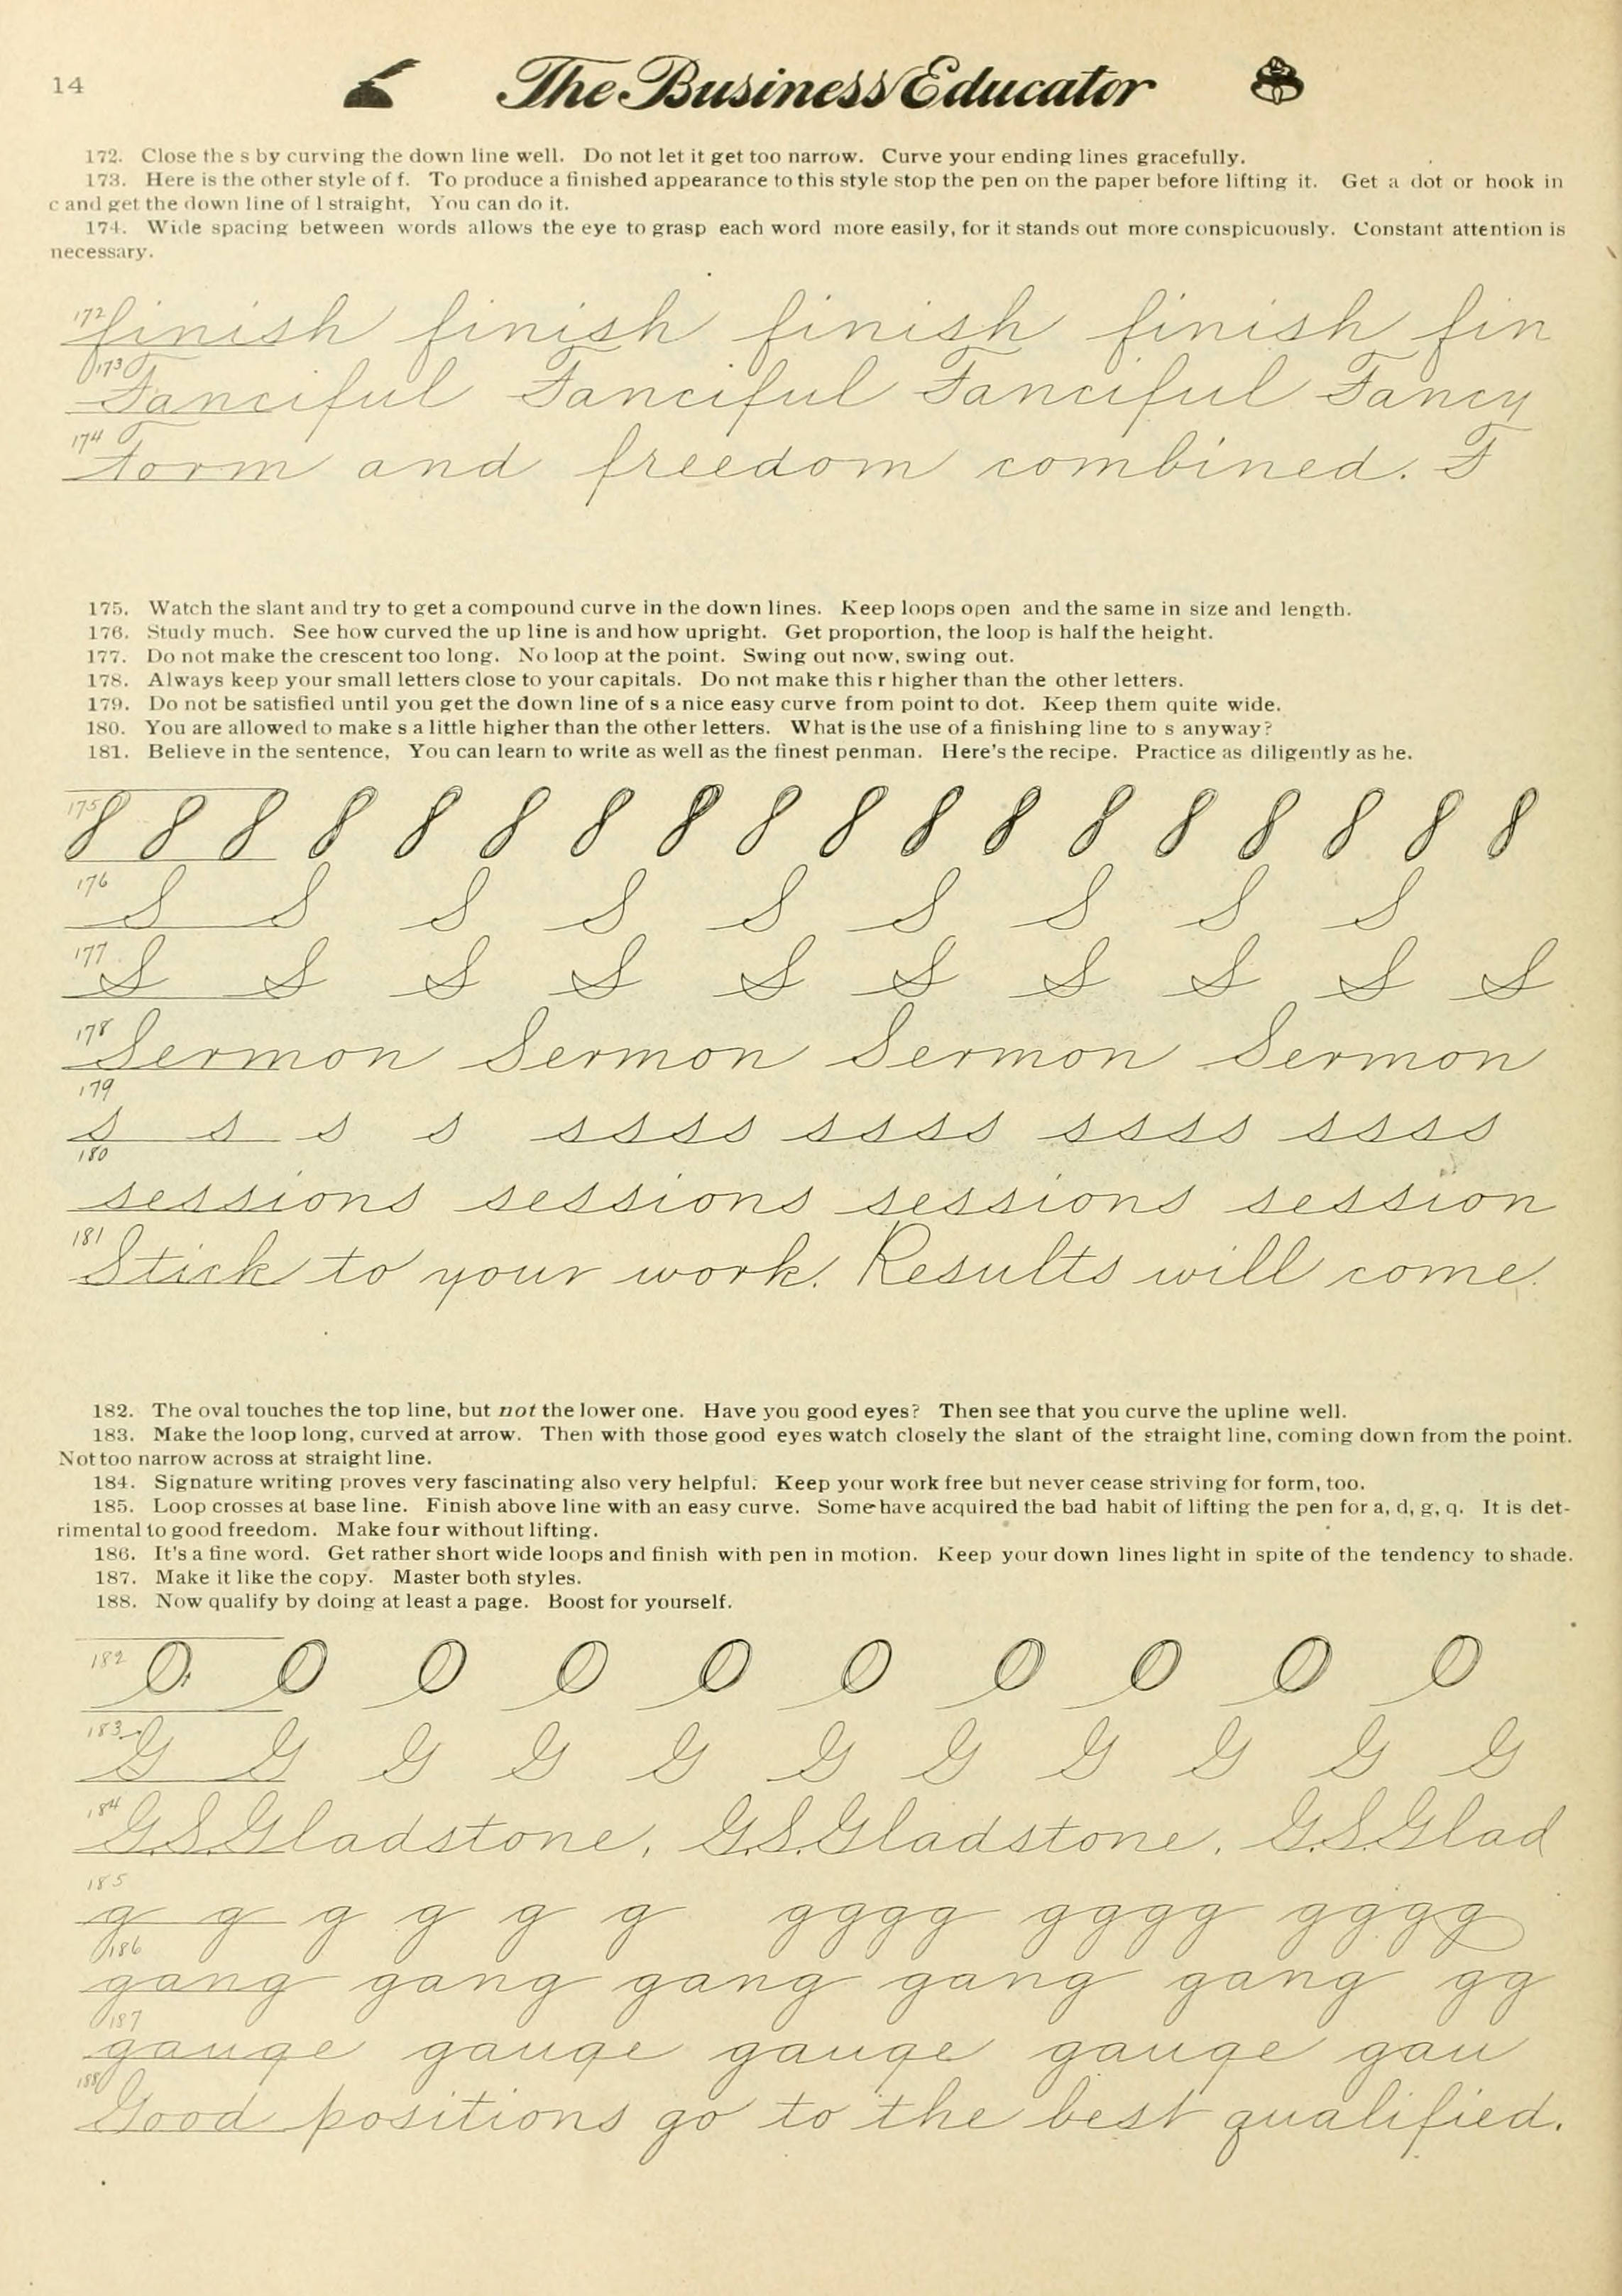 14
The Business Educator
172. Close the s by curving the down line well. Do not let it get too narrow. Curve your ending lines gracefully.
173. Here is the other style of f. To produce a finished appearance to this style stop the pen on the paper before lifting it. Get a dot or hook in
c and get the down line of l straight, You can do it.
174. Wide spacing between words allows the eye to grasp each word more easily, for it stands out more conspicuously. Constant attention is
necessary.
172 finish finish finish finish fin
173 Fanciful Fanciful Fanciful Fancy
174 Form and freedom combined. F
175. Watch the slant and try to get a compound curve in the down lines. Keep loops open and the same in size and length.
176. Study much. See how curved the up line is and how upright. Get proportion, the loop is half the height.
177. Do not make the crescent too long. No loop at the point. Swing out now, swing out.
178. Always keep your small letters close to your capitals. Do not make this r higher than the other letters.
179. Do not be satisfied until you get the down line of s a nice easy curve from point to dot. Keep them quite wide.
180. You are allowed to make s a little higher than the other letters. What is the use of a finishing line to s anyway?
181. Believe in the sentence, You can learn to write as well as the finest penman. Here's the recipe. Practice as diligently as he.
175 8 8 8 8 8 8 8 8 8 8 8 8 8 8 8 8 8 8
176 S S S S S S S S S
177 S S S S S S S S S S
178 Sermon Sermon Sermon Sermon
179 s s s s ssss ssss ssss ssss
180 sessions sessions sessions session
181 Stick to your work. Results will come.
182. The oval touches the top line, but not the lower one. Have you good eyes? Then see that you curve the upline well.
183. Make the loop long, curved at arrow. Then with those good eyes watch closely the slant of the straight line, coming down from the point.
Not too narrow across at straight line.
184. Signature writing proves very fascinating also very helpful. Keep your work free but never cease striving for form, too.
185. Loop crosses at base line. Finish above line with an easy curve. Some have acquired the bad habit of lifting the pen for a, d, g, q. It is det-
rimental to good freedom. Make four without lifting.
186. It's a fine word. Get rather short wide loops and finish with pen in motion. Keep your down lines light in spite of the tendency to shade.
187. Make it like the copy. Master both styles.
188. Now qualify by doing at least a page. Boost for yourself.
182 O O O O O O O O O O
183 G G G G G G G G G G G
184 G.S.Gladstone, G.S.Gladstone, G.S.Glad
185 g g g g g g gggg gggg gggg
186 gang gang gang gang gang gg
187 gauge gauge gauge gauge gau
188 Good positions go to the best qualified.